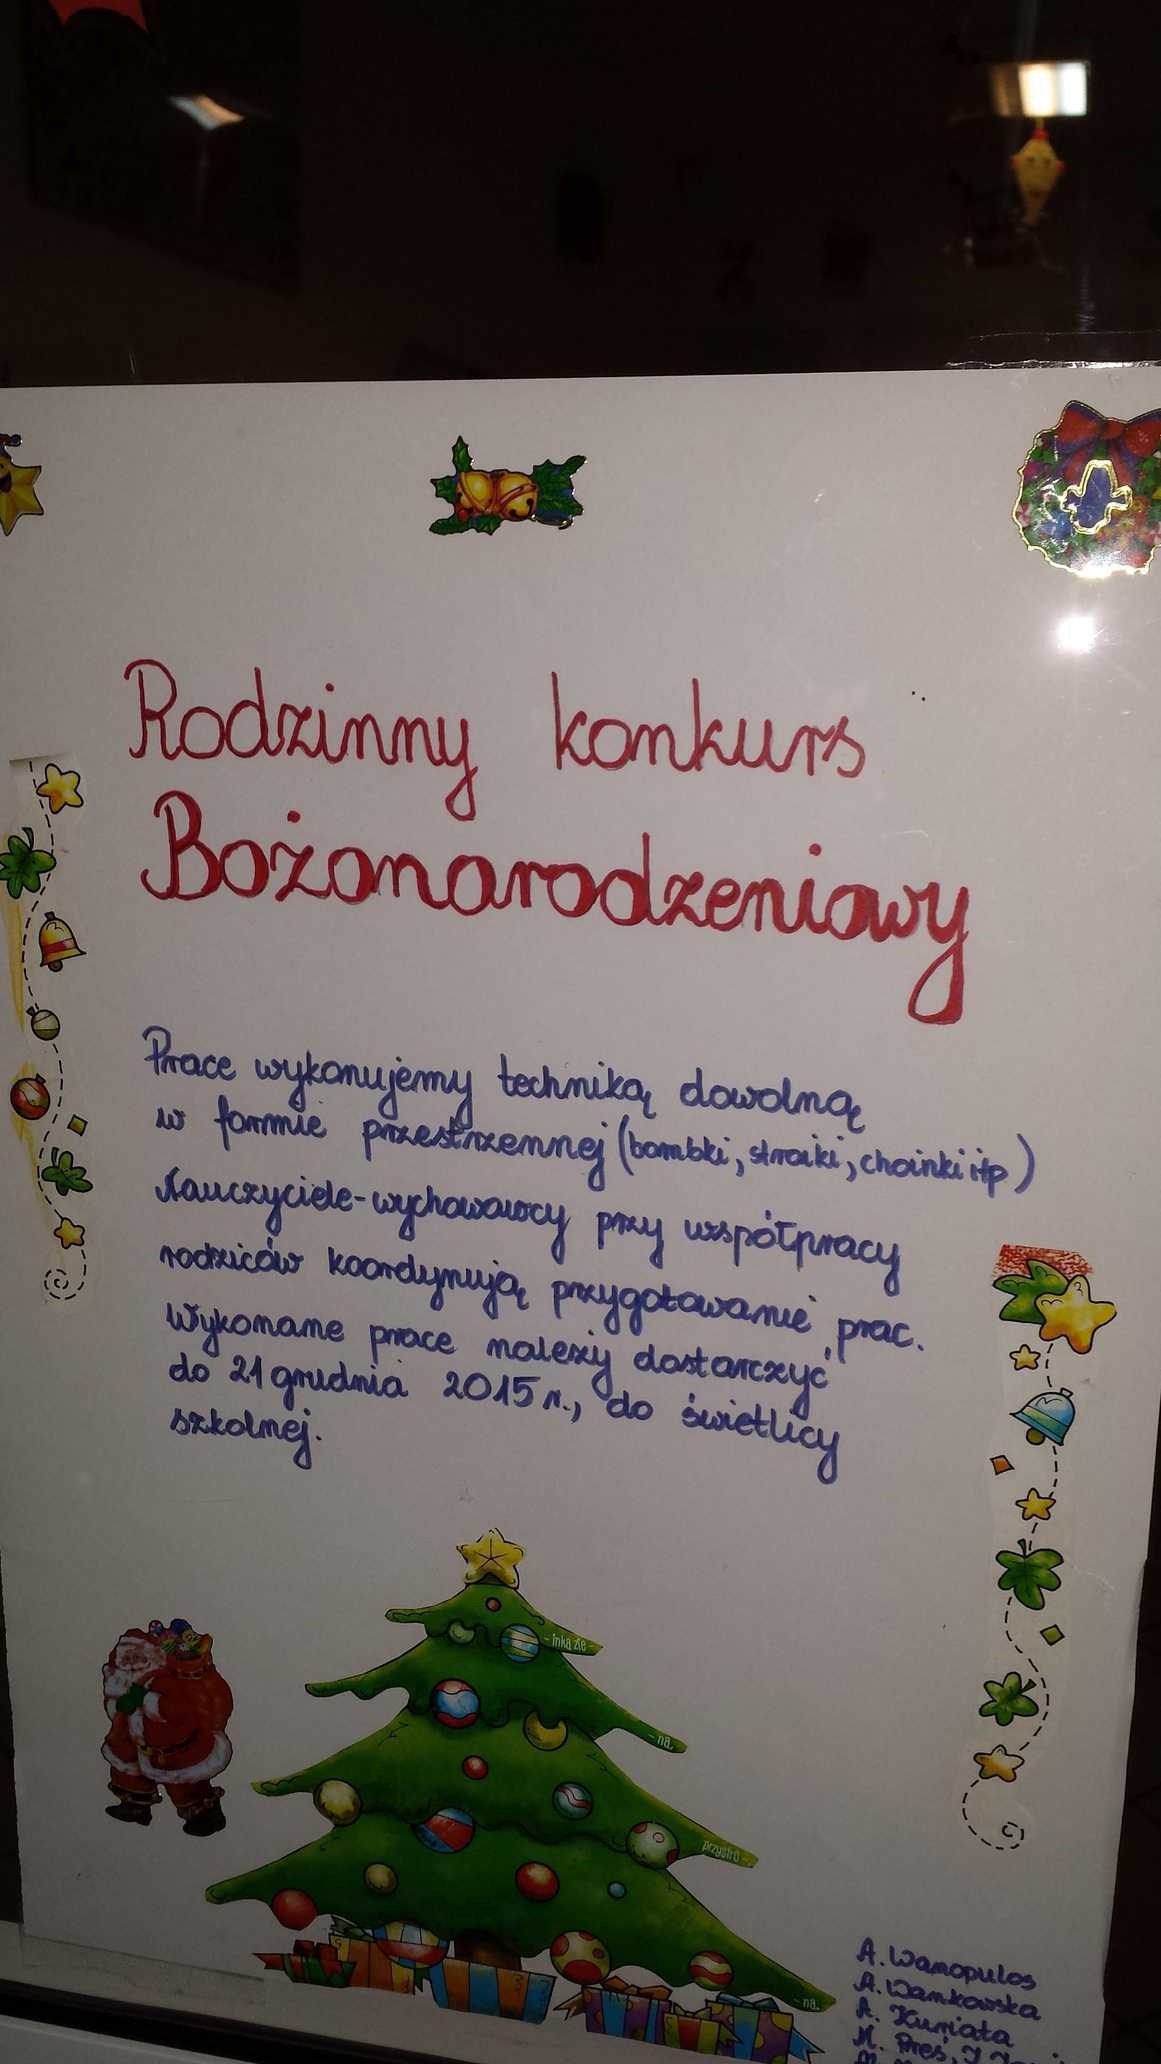 Rodzinny konkurs
Bożonarodzeniowy
Prace wykonujemy techniką dowolną
w formie przestrzennej (bombki, stroiki, choinki itp)
Nauczyciele-wychowawcy przy współpracy
rodziców koordynują przygotowanie prac.
Wykonane prace należy dostarczyć
do 21 grudnia 2015 r., do świetlicy
szkolnej.
- inka zie -
- na,
przystro -
- na.
A. Wanopulos
A. Wankowska
A. Kuriata